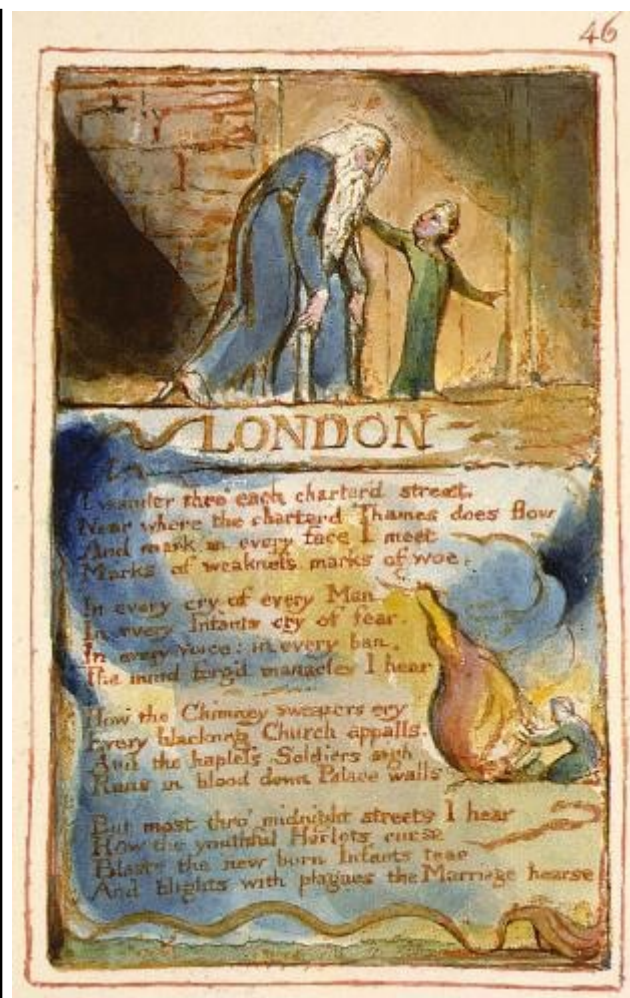 46
LONDON
I wander thro' each charter'd street,
Near where the charter'd Thames does flow
And mark in every face I meet
Marks of weakness marks of woe.
In every cry of every Man
In every Infants cry of fear.
In every voice: in every ban.
The mind forg'd manacles I hear
How the Chimney sweepers cry
Every blackning Church appalls.
And the hapless Soldiers sigh
Runs in blood down Palace walls
But most thro' midnight streets I hear
How the youthful Harlots curse
Blasts the new born Infants tear
And blights with plagues the Marriage hearse